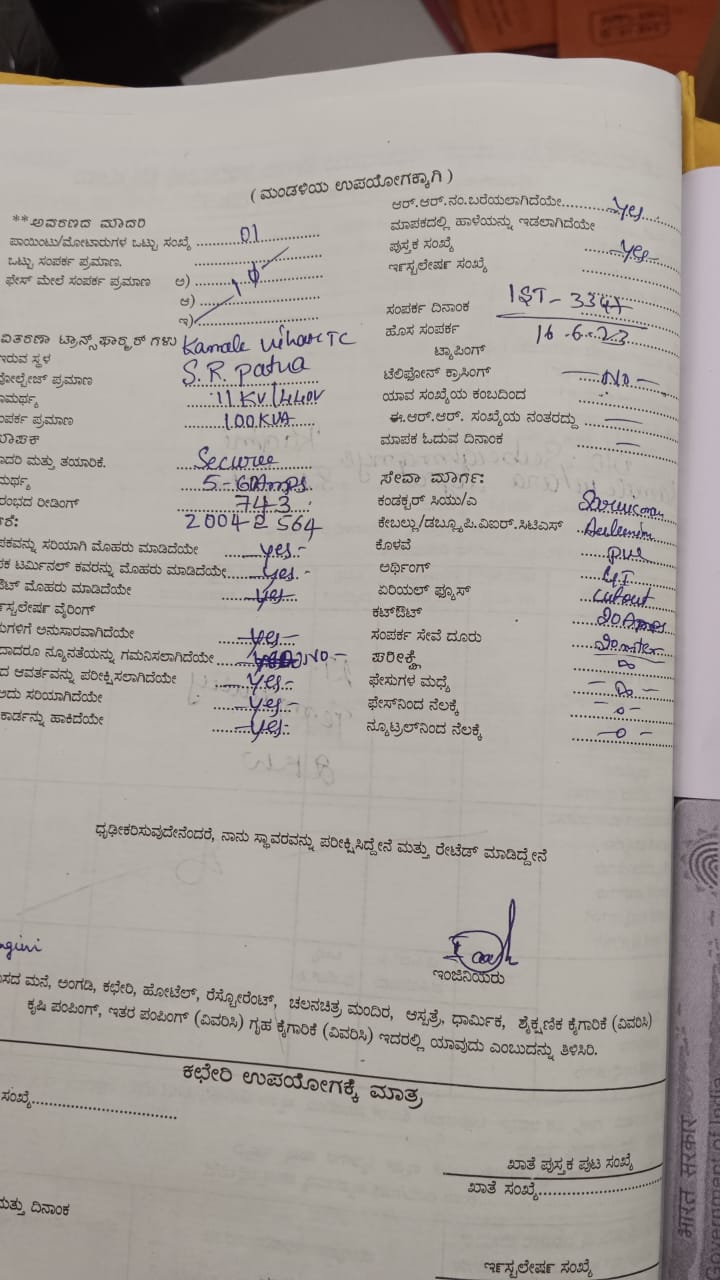 ( ಮಂಡಳಿಯ ಉಪಯೋಗಕ್ಕಾಗಿ )
**ಅವರಣದ ಮಾದರಿ
ಪಾಯಿಂಟು/ಮೋಟಾರುಗಳ ಒಟ್ಟು ಸಂಖ್ಯೆ 01
ಒಟ್ಟು ಸಂಪರ್ಕ ಪ್ರಮಾಣ.
ಫೇಸ್ ಮೇಲೆ ಸಂಪರ್ಕ ಪ್ರಮಾಣ ಅ) 1 ф
ಆ)
ಇ)
ವಿತರಣಾ ಟ್ರಾನ್ಸ್‌ಫಾರ್ಮರ್ ಗಳು Kamala Vihar TC
ಇರುವ ಸ್ಥಳ S. R. Patna
ಪ್ರಮಾಣ 11 KV/440V
100 KVA
ಪ್ರಮಾಣ
ಮತ್ತು ತಯಾರಿಕೆ. Secure
5-60Amps
ರೀಡಿಂಗ್ 743
20042564
ಸರಿಯಾಗಿ ಮೊಹರು ಮಾಡಿದೆಯೇ yes.-
ಟರ್ಮಿನಲ್ ಕವರನ್ನು ಮೊಹರು ಮಾಡಿದೆಯೇ yes.-
ಮೊಹರು ಮಾಡಿದೆಯೇ yes
ವೈರಿಂಗ್
ಅನುಸಾರವಾಗಿದೆಯೇ yes-
ನ್ಯೂನತೆಯನ್ನು ಗಮನಿಸಲಾಗಿದೆಯೇ NO-
ಆವರ್ತವನ್ನು ಪರೀಕ್ಷಿಸಲಾಗಿದೆಯೇ yes-
ಅದು ಸರಿಯಾಗಿದೆಯೇ yes-
ಕಾರ್ಡನ್ನು ಹಾಕಿದೆಯೇ yes-
ಆರ್.ಆರ್.ನಂ.ಬರೆಯಲಾಗಿದೆಯೇ yes
ಮಾಪಕದಲ್ಲಿ ಹಾಳೆಯನ್ನು ಇಡಲಾಗಿದೆಯೇ
ಪುಸ್ತಕ ಸಂಖ್ಯೆ yes-
ರ್ಇಸ್ಟಲೇಷನ್ ಸಂಖ್ಯೆ
ಸಂಪರ್ಕ ದಿನಾಂಕ IST-3347
ಹೊಸ ಸಂಪರ್ಕ 16-6-23
ಟ್ಯಾಪಿಂಗ್
ಟೆಲಿಫೋನ್ ಕ್ರಾಸಿಂಗ್ -No-
ಯಾವ ಸಂಖ್ಯೆಯ ಕಂಬದಿಂದ
ಈ.ಆರ್.ಆರ್. ಸಂಖ್ಯೆಯ ನಂತರದ್ದು -
ಮಾಪಕ ಓದುವ ದಿನಾಂಕ -
ಸೇವಾ ಮಾರ್ಗ:
ಕಂಡಕ್ಟರ್ ಸಿಯು/ಎ
ಕೇಬಲ್ಲು/ಡಬ್ಲ್ಯೂ.ಪಿ.ವಿಐರ್.ಸಿಟಿಎಸ್
ಕೊಳವೆ PVC
ಅರ್ಥಿಂಗ್ G.I
ಏರಿಯಲ್ ಫ್ಯೂಸ್ cutout
ಕಟ್‌ಔಟ್ 20Amps
ಸಂಪರ್ಕ ಸೇವೆ ದೂರು 20 meter
ಪರೀಕ್ಷೆ ∞
ಫೇಸುಗಳ ಮಧ್ಯೆ -∞-
ಫೇಸ್‌ನಿಂದ ನೆಲಕ್ಕೆ -0-
ನ್ಯೂಟ್ರಲ್‌ನಿಂದ ನೆಲಕ್ಕೆ -0-
ಧೃಢೀಕರಿಸುವುದೇನೆಂದರೆ, ನಾನು ಸ್ಥಾವರವನ್ನು ಪರೀಕ್ಷಿಸಿದ್ದೇನೆ ಮತ್ತು ರೇಟೆಡ್ ಮಾಡಿದ್ದೇನೆ
ಇಂಜಿನಿಯರು
ಮನೆ, ಅಂಗಡಿ, ಕಛೇರಿ, ಹೋಟೆಲ್, ರೆಸ್ಟೋರೆಂಟ್, ಚಲನಚಿತ್ರ ಮಂದಿರ, ಆಸ್ಪತ್ರೆ, ಧಾರ್ಮಿಕ, ಶೈಕ್ಷಣಿಕ ಕೈಗಾರಿಕೆ (ವಿವರಿಸಿ)
ಕೃಷಿ ಪಂಪಿಂಗ್, ಇತರ ಪಂಪಿಂಗ್ (ವಿವರಿಸಿ) ಗೃಹ ಕೈಗಾರಿಕೆ (ವಿವರಿಸಿ) ಇದರಲ್ಲಿ ಯಾವುದು ಎಂಬುದನ್ನು ತಿಳಿಸಿರಿ.
ಕಛೇರಿ ಉಪಯೋಗಕ್ಕೆ ಮಾತ್ರ
ಸಂಖ್ಯೆ
ಖಾತೆ ಪುಸ್ತಕ ಪುಟ ಸಂಖ್ಯೆ
ಖಾತೆ ಸಂಖ್ಯೆ
ಮತ್ತು ದಿನಾಂಕ
ರ್ಇಸ್ಟಲೇಷನ್ ಸಂಖ್ಯೆ
भारत सरकार
Government of India